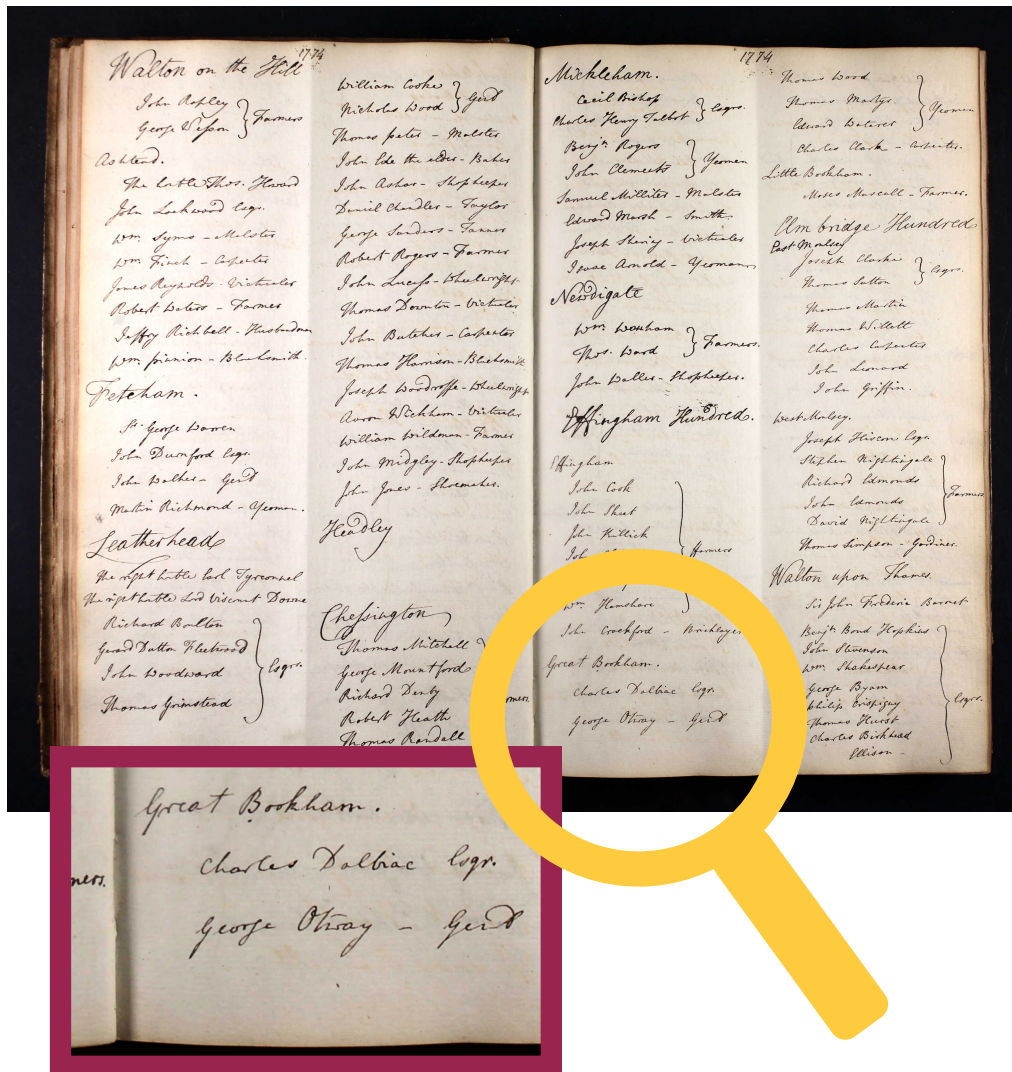 1774
Walton on the Hill
John Ropley
George Wesson } Farmers
Ashtead.
The honble Thos. Howard
John Lockwood Esqr.
Wm. Syms - Malster
Wm Finch - Carpenter
James Reynolds - Victualer
Robert Waters - Farmer
Jeffry Richbell - Husbandman
Wm. pinnion - Blacksmith.
Fetcham.
Sr. George Warren
John Durnford Esqr.
John Walker - Gent
Martin Richmond - Yeoman.
Leatherhead
The right honble Earl Tyrconnel
The right honble Lord Viscount Downe
Richard Boulton
Gerard Dutton Fleetwood
John Woodward
Thomas Grimstead } Esqrs.
William Cooke
Nicholas Wood } Gent
Thomas peter - Malster
John Ede the elder - Baker
John Asher - Shopkeeper
Daniel Chandler - Taylor
George Sanders - Tanner
Robert Rogers - Farmer
John Lucass - Wheelwright
Thomas Dounton - Victualer
John Butcher - Carpenter
Thomas Harrison - Blacksmith
Joseph Woodroffe - Wheelwright
Aaron Wickham - Victualer
William Wildman - Farmer
John Midgley - Shopkeeper
John Jones - Shoemaker.
Headley
Chessington
Thomas Mitchell
George Mountford
Richard Denby
Robert Heath
Thomas Randall
mers.
1774
Mickleham.
Cecil Bishop
Charles Henry Talbot } Esqrs.
Benjn. Rogers
John Clements } Yeomen
Samuel Milliter - Malster
Edward Marsh - Smith.
Joseph - Victualer
Isaac Arnold - Yeoman
Newdigate
Wm. Wonham
Thos. Ward } Farmers.
John Waller - Shopkeeper.
Effingham Hundred.
Effingham
John Cook
John Sheet
John
John
Wm. Hamshare
farmers
John Crockford - Bricklayer
Great Bookham.
Charles Dalbiac Esqr.
George Otway - Gent
Thomas Wood
Thomas Martyr
Edward Waterer } Yeomen
Charles Clark - Carpenter.
Little Bookham.
Moses Muscall - Farmer.
Elmbridge Hundred
East Moulsey
Joseph Clarke
Thomas Sutton } Esqrs.
Thomas Martin
Thomas Willett
Charles Carpenter
John Leonard
John Griffin.
West Mulsey.
Joseph Esqr.
Stephen Nightingale
Richard Edmonds
John Edmonds
David Nightingale } Farmers
Thomas Simpson - Gardiner.
Walton upon Thames
Sir John Frederic Barnet
Benjn. Bond Hopkins
John Stevenson
Wm. Shakespear
George Byam
Philip Crispigny
Thomas Hurst
Charles Birkhead } Esqrs.
Ellison -
Great Bookham.
Charles Dalbiac Esqr.
mers.
George Otway - Gent